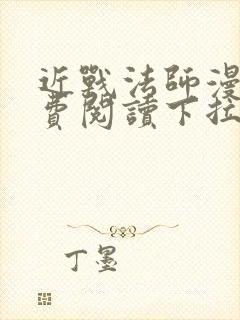 近戰法師漫
費閱讀下拉
丁墨